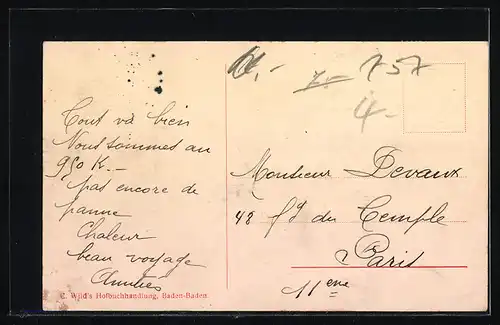 Tout va bien
Nous sommes au
950 K.-
pas encore de
panne
Chaleur
beau voyage
Amitiés
C. Wild's Hofbuchhandlung, Baden-Baden
7.- 757
4-
Monsieur Devaux
48 fg du Temple
Paris
11eme